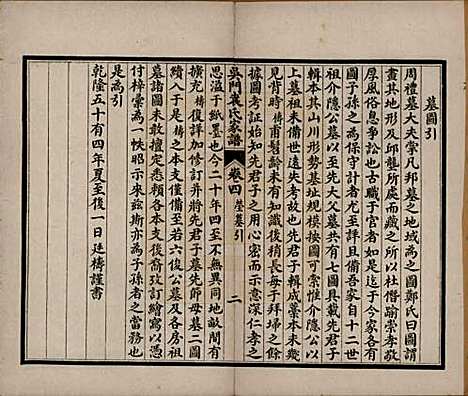 墓圖引
周禮墓大夫掌凡邦墓之地域為之圖鄭氏曰圖謂
畫其地形及邱壟所處而藏之所以杜僭踰崇孝敬
厚風俗息爭訟也古職于官者如彼于今家各有
圖子孫之為保守計者尤當具備吾家自十二世
祖介隱公以至先大父墓共有七圖具載先
輯本其山川形勢基址規模按圖可索惟介隱公以
上墓祖未備世遠失考故也先君子輯成藁本未幾
見背時梼甫髫齡未有知識後稍長每于拜埽之餘
據圖考証始知先君子之用心密而示意深仁孝之
思溢于紙墨也今二十年四至不無異同地畝間有
吳門袁氏家譜
卷四
塋墓引
二
擴充梼復詳加修訂并將先君子墓先師母墓二圖
續入于是梼之本支僅備至若六俊公墓及各房祖
墓諸圖未敢擅定悉賴各本支後裔攷訂繪寫以憑
付梓彙為一帙昭示來茲斯亦為子孫者之當務也
是為引
乾隆五十有四年夏至後一日廷梼謹書